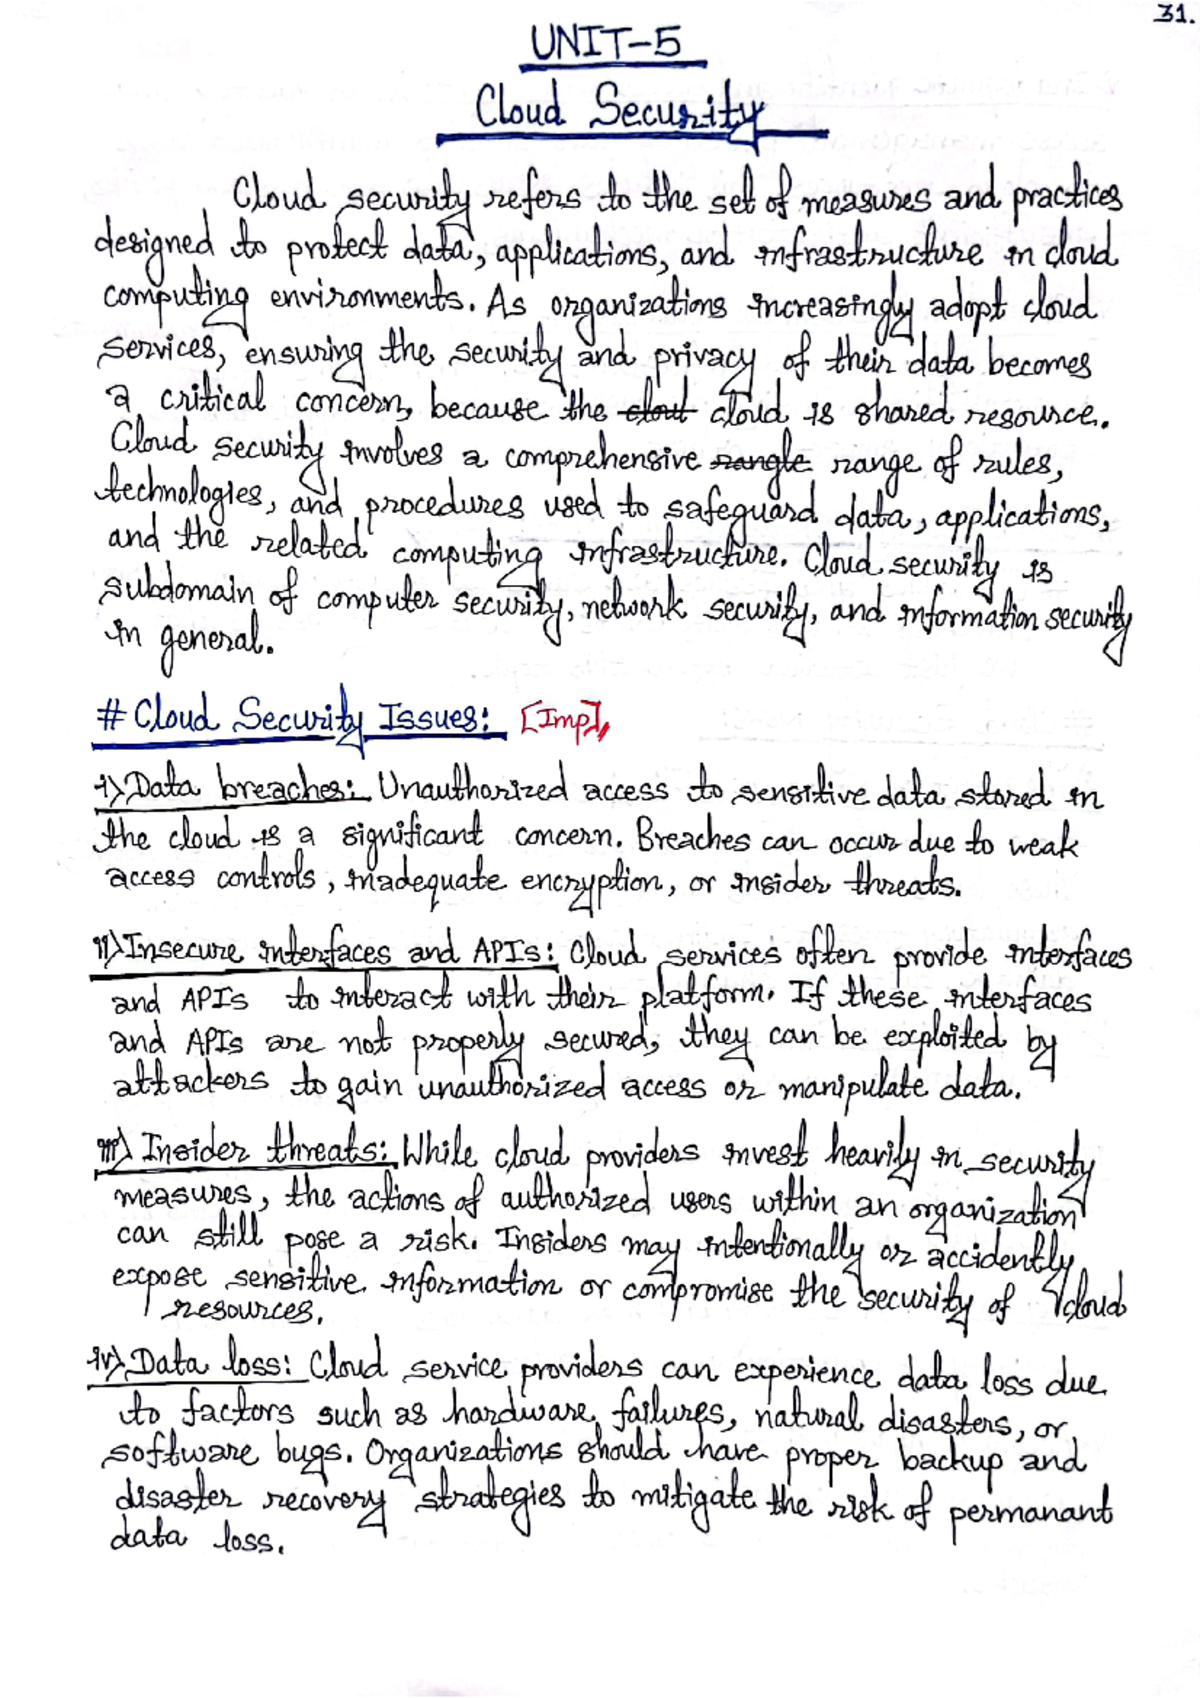 31.
UNIT-5
Cloud Security
Cloud security refers to the set of measures and practices
designed to protect data, applications, and infrastructure in cloud
computing environments. As organizations increasingly adopt cloud
services, ensuring the security and privacy of their data becomes
a critical concern, because the clout cloud is shared resource.
Cloud security involves a comprehensive rangle range of rules,
technologies, and procedures used to safeguard data, applications,
and the related computing infrastructure. Cloud security is
subdomain of computer security, network security, and information security
in general.
# Cloud Security Issues: [Imp]
i) Data breaches: Unauthorized access to sensitive data stored in
the cloud is a significant concern. Breaches can occur due to weak
access controls, inadequate encryption, or insider threats.
ii) Insecure interfaces and APIs: Cloud services often provide interfaces
and APIs to interact with their platform. If these interfaces
and APIs are not properly secured, they can be exploited by
attackers to gain unauthorized access or manipulate data.
iii) Insider threats: While cloud providers invest heavily in security
measures, the actions of authorized users within an organization
can still pose a risk. Insiders may intentionally or accidently
expose sensitive information or compromise the security of cloud
resources.
iv) Data loss: Cloud service providers can experience data loss due
to factors such as hardware failures, natural disasters, or
software bugs. Organizations should have proper backup and
disaster recovery strategies to mitigate the risk of permanant
data loss.